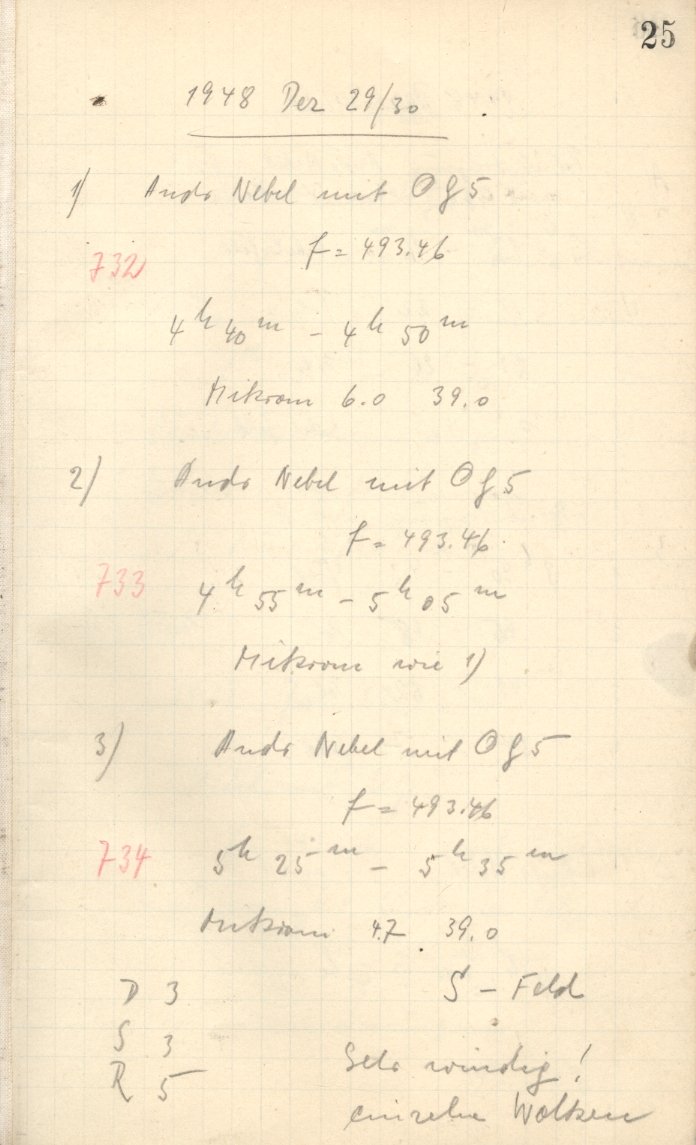 25
1948 Dez 29/30
1) Andr Nebel mit Og5
732
f = 493.46
4h 40m – 4h 50m
Mikrom 6.0 39.0
2) Andr Nebel mit Og5
f = 493.46
733 4h 55m – 5h 05m
Mikrom wie 1)
3) Andr Nebel mit Og5
f = 493.46
734 5h 25m – 5h 35m
Mikrom 4.7 39.0
D 3 S – Feld
S 3
R 5 Sehr windig!
einzelne Wolken